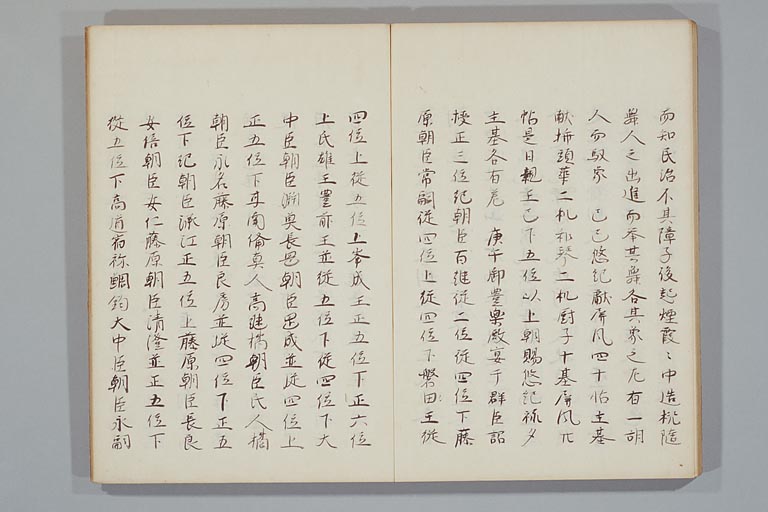 而知民治不其障子後起煙霞〻中造桃隨
舞人之出進而奉其舞各其象之尤有一胡
人而馭象　己巳悠紀獻屏風四十帖主基
獻挿頭華二机和琴二机厨子十基屏風廿
帖是日親王已下五位以上朝賜悠紀祿夕
主基各有差　庚午御豊樂殿宴于群臣詔
授正三位紀朝臣百継從二位從四位下藤
原朝臣常嗣從四位上從四位下磐田王從
四位上從五位上峯成王正五位下正六位
上氏雄王豊前王並從五位下從四位下大
中臣朝臣淵奥長岡朝臣岡成並從四位上
正五位下三南備真人高継橘朝臣氏人橘
朝臣永名藤原朝臣良房並從四位下正五
位下紀朝臣深江正五位上藤原朝臣長良
安倍朝臣安仁藤原朝臣清澄並正五位下
從五位下高道宿祢鯛釣大中臣朝臣永嗣